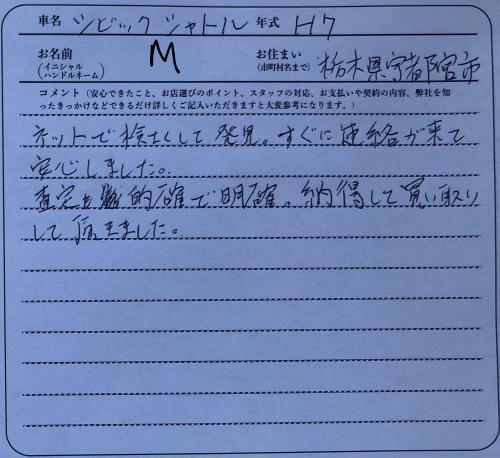 車名 シビックシャトル 年式 H7
お名前 (イニシャル ハンドルネーム) M お住まい (市町村名まで) 栃木県宇都宮市
コメント（安心できたこと、お店選びのポイント、スタッフの対応、お支払いや契約の内容、弊社を知
ったきっかけなどできるだけ詳しくご記入いただきますと大変参考になります。）
ネットで検さくして発見。すぐに連絡が来て
安心しました。
査定も 的確で明確。納得して買い取り
して頂きました。